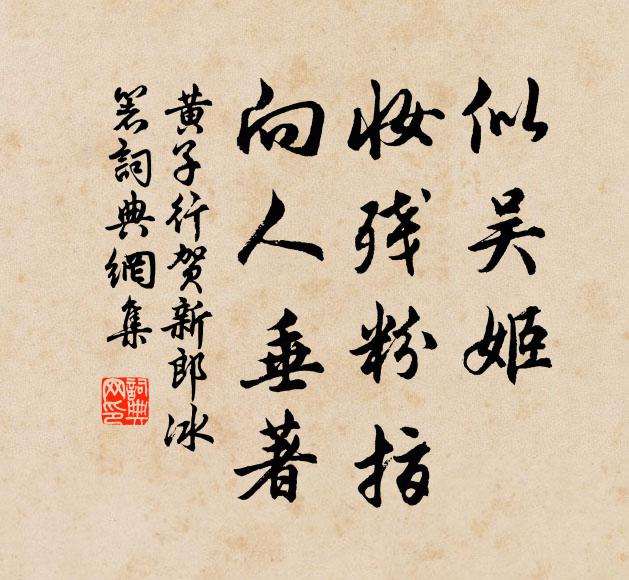 似吴姬
妆残粉指
向人垂著
黄子行贺新郎冰
箸詞典網集
詞典网印